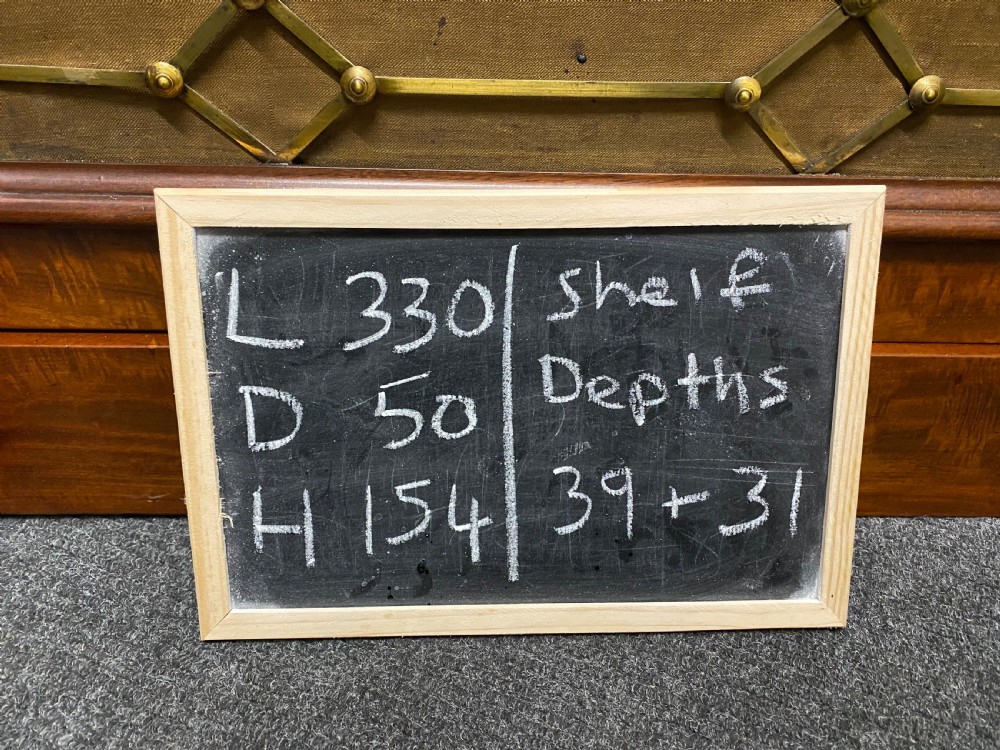 L 330
D 50
H 154
Shelf
Depths
39 + 31